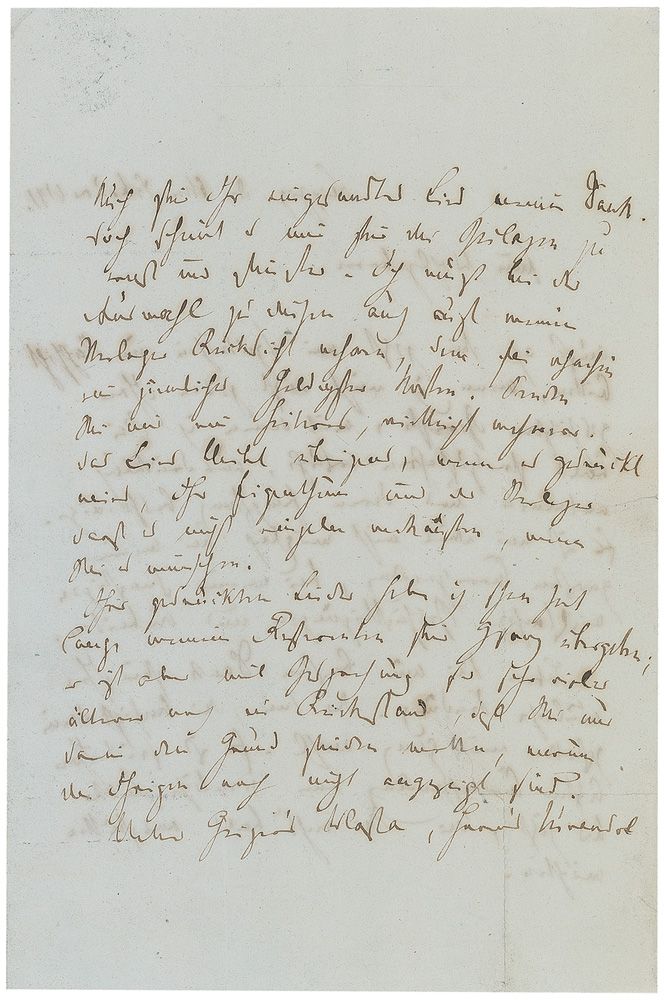 Auch für Ihr eingesandtes Lied meinen Dank.
Doch scheint es mir für die Beilagen zu
ernst und düster – Ich muß bei der
Auswahl zu diesen auch auf meinen
Verleger Rücksicht nehmen, dem sie ohnehin
ein ziemliches Geldopfer kosten. Senden
Sie mir ein heiteres, vielleicht mehrere.
Das Lied bleibt übrigens, wenn es gedruckt
wird, Ihr Eigenthum und der Verleger
darf es nicht einzeln verkaufen, wenn
Sie es wünschen.
Ihre gedruckten Lieder habe ich schon seit
lange meinem Referenten für Gesang übergeben;
er ist aber mit Besprechung so sehr vieler
älterer noch im Rückstand, daß Sie nur
darin den Grund finden wollen, warum
die Ihrigen noch nicht angezeigt sind.